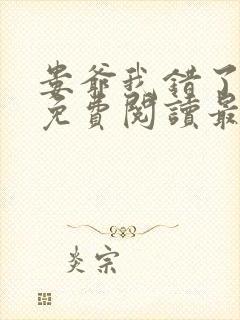 婁爺我錯了
免費閱讀最
炎宗